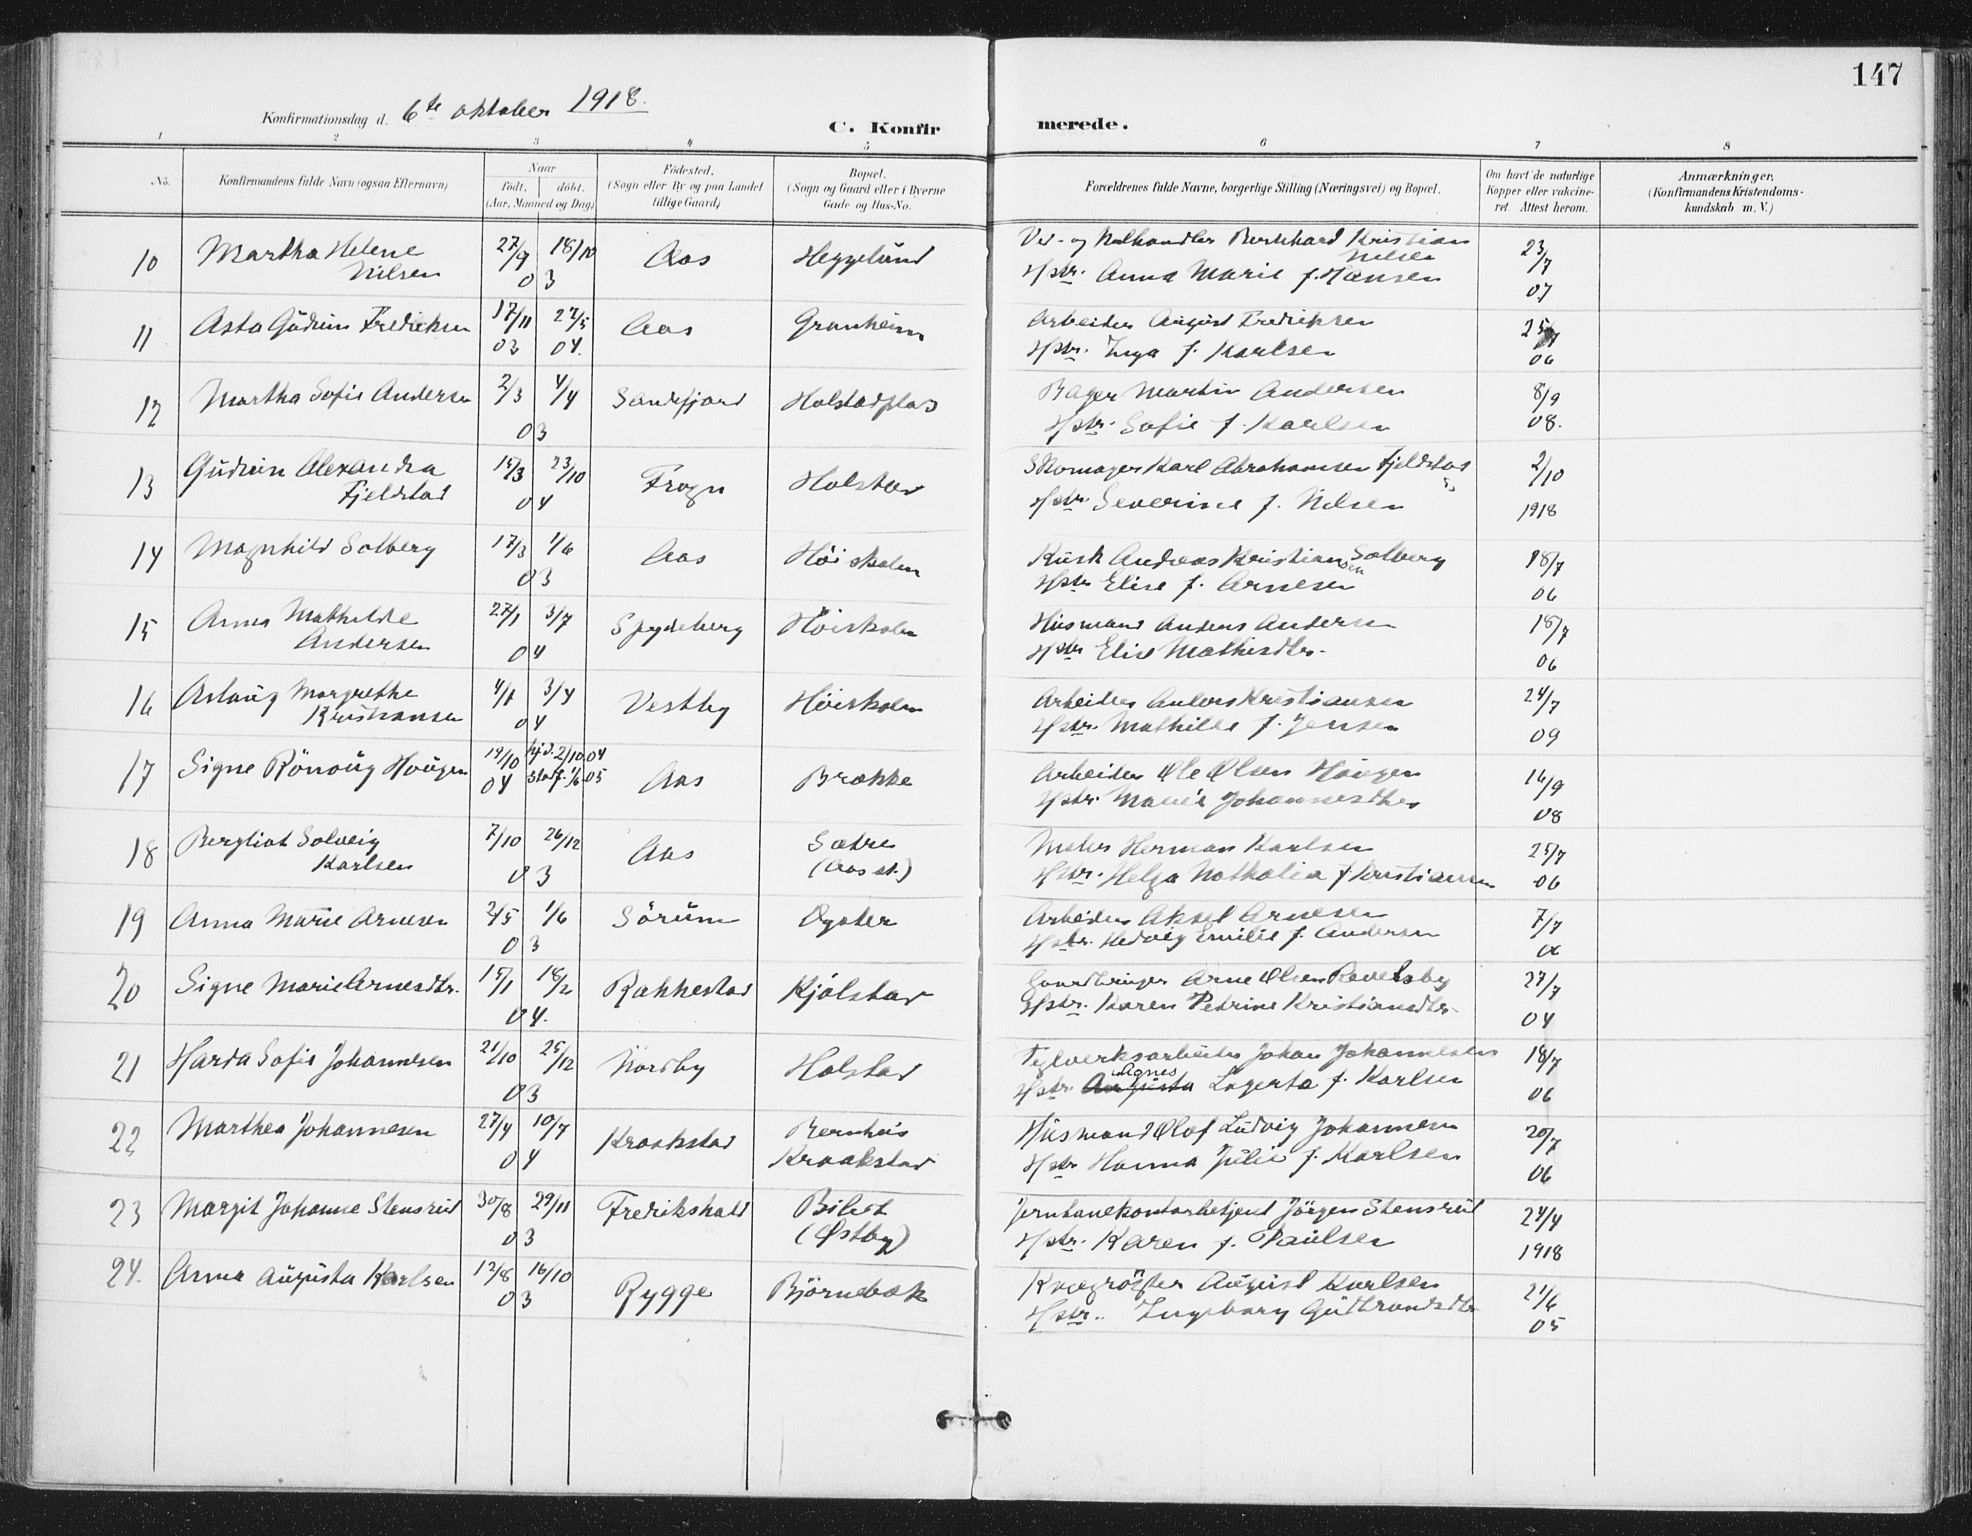 147
Konfirmationsdag d. 6te oktober 1918.
C. Konfirmerede.
1 2 3 4 5 6 7 8
No. Konfirmandens fulde Navn (ogsaa Efternavn)
Naar født. døbt. (Aar, Maaned og Dag)
Födested. (Sogn eller By og paa Landet tillige Gaard)
Bopæl. (Sogn og Gaard eller i Byerne Gade og Hus-No.
Forældrenes fulde Navne, borgerlige Stilling (Næringsvei) og Bopæl.
Om havt de naturlige Kopper eller vakcineret. Attest herom.
Anmærkninger. (Konfirmandens Kristendomskundskab m. V.)
10 Martha Helene Nilsen 27/9 18/10 03 Aas Heggelund
Ved- og Kulhandler Bernhard Kristian Nilsen
Hstr. Anna Marie f. Hansen 23/7 07
11 Asta Gudrun Fredriksen 17/11 03 27/5 04. Aas Granheim
Arbeider August Fredriksen
Hstr. Inga f. Karlsen 06
12 Martha Sofie Andersen 2/3 4/4 03 Sandefjord Holstadplas
Bager Martin Andersen
Hstr. Sofie f. Karlsen 8/9 08.
13 Gudrun Alexandra Fjeldstad 15/3 23/10 04 Frogn Holstad
Skomager Karl Abrahamsen Fjeldstad
Hstr. Severine f. Nilsen 2/10 1918
14 Magnhild Solberg 17/3 1/6 03 Aas Høiskolen
Kusk Andreas Kristiansen Solberg
Hstr Elise f. Arnesen 18/7 06
15 Anna Mathilde Andersen 27/1 3/7 04 Spydeberg Høiskolen
Husmand Anders Andersen
Hstr Elise Mathisdtr. 18/7 06
16 Aslaug Margrethe Kristiansen 4/1 3/4 04 Vestby Høiskolen
Arbeider Anders Kristiansen
Hstr. Mathilde f. Jensen 24/7 09
17 Signe Rönoug Hougen 19/10 04 hjd. 2/10 04 Stadf. 1/6 05 Aas Brække
Arbeider Ole Olsen Haugen
Hstr. Marie Johannesdtr 16/9 08
18 Bergliot Solveig Karlsen 7/10 26/12 03 Aas Sætre (Aas st.)
Maler Herman Karlsen
Hstr. Helga Nathalia f. Kristiansen 25/7 06
19 Anna Marie Arnesen 2/5 1/6 03 Sörum Oyster
Arbeider Aksel Arnesen
Hstr. Hedvig Emilie f. Andersen 7/7
20 Signe Marie Arnesdtr. 15/1 18/2 04. Rakkestad Kjölstad
Gaardbruger Arne Olsen Ravelsby
Hstr. Karen Petrine Kristiansdtr. 27/7 04
21 Harda Sofie Johannesen 21/10 25/12 03 Nordby Holstad
Teglverksarbeider Johan Johannesen
Hstr. Augusta Agnes Lagerta f. Karlsen 18/7 06
22 Marthea Johannesen 27/4 10/7 04 Kraakstad Bernhus Kraakstad
Husmand Olof Ludvig Johannesen
Hstr Hanna Julie f. Karlsen 20/7 06
23 Margit Johanne Stensrud 30/8 29/11 03 Fredrikshald Bilet (Østby)
Jernbanekontorbetjent Jörgen Stensrud
Hstr. Karen f. Paulsen 24/4 1918
24. Anna Augusta Karlsen 12/8 16/10 03 Rygge Björnebæk
August Karlsen
Hstr. Ingeborg Gudbrandsdtr 21/6 05